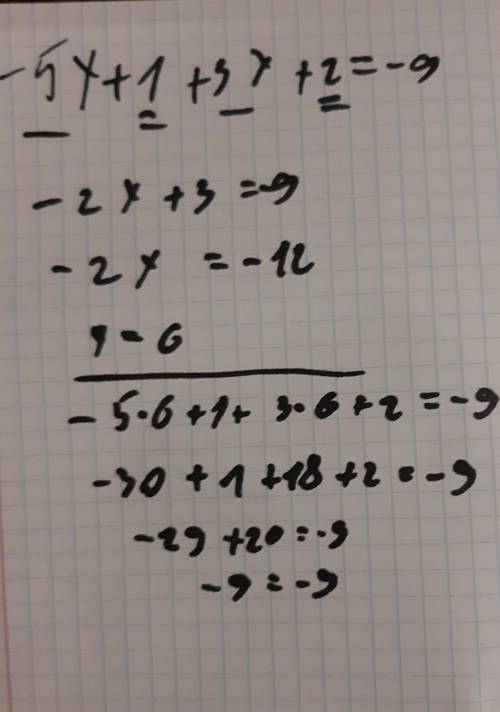 -5x+1+3x+2=-9
-2x+3=-9
-2x=-12
x=6
-5·6+1+3·6+2=-9
-30+1+18+2=-9
-29+20=-9
-9=-9